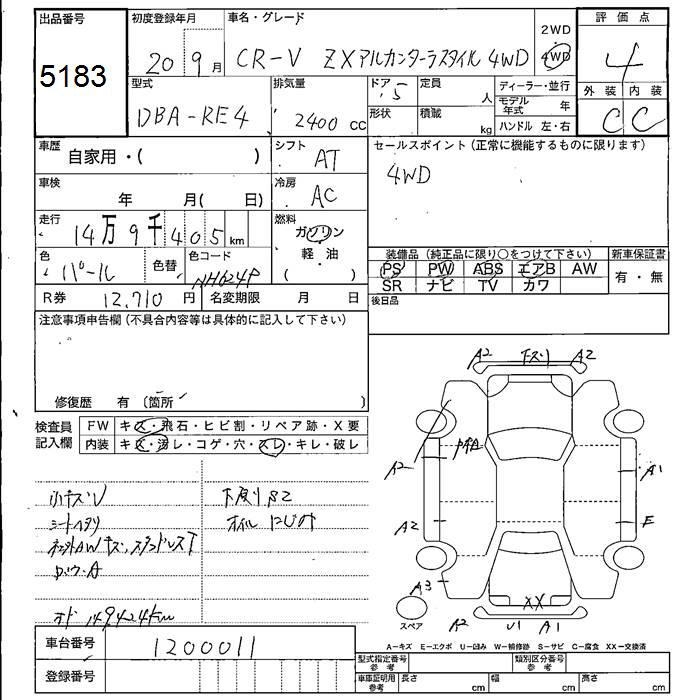 出品番号
5183
初度登録年月
20 9月
車名・グレード
CR-V ZXアルカンターラスタイル 4WD
2WD
・
4WD
評価点
4
外装 内装
C C
型式
DBA-RE4
排気量
2400 cc
ドア 5
形状
定員 人
積載 kg
ディーラー・並行
モデル年式 年
ハンドル 左・右
車歴
自家用・( )
シフト
AT
セールスポイント(正常に機能するものに限ります)
4WD
車検
年 月( 日)
冷房
AC
走行
14万9千405km
燃料
ガソリン
・
軽・油
( )
色
パール
色替
色コード
NH624P
装備品(純正品に限り○をつけて下さい)
PS PW ABS エアB AW
SR ナビ TV カワ
新車保証書
有・無
R券 12,710円
名変期限 月 日
後日品
注意事項申告欄(不具合内容等は具体的に記入して下さい)
修復歴 有(箇所 )
検査員
記入欄
FW キズ・飛石・ヒビ割・リペア跡・X要
内装 キズ・汚レ・コゲ・穴・スレ・キレ・破レ
小キズU
シートヘタリ
下廻りS2
オイルにじみ
オド 149424km
A2 下スリ A2
A2
A1
A2
E
A3
スペア
XX
A2 U1 A1
A-キズ E-エクボ U-凹み W-補修跡 S-サビ C-腐食 XX-交換済
車台番号
1200011
登録番号
型式指定番号
参考
類別区分番号
参考
車庫証明用
参考
長さ cm
幅 cm
高さ cm